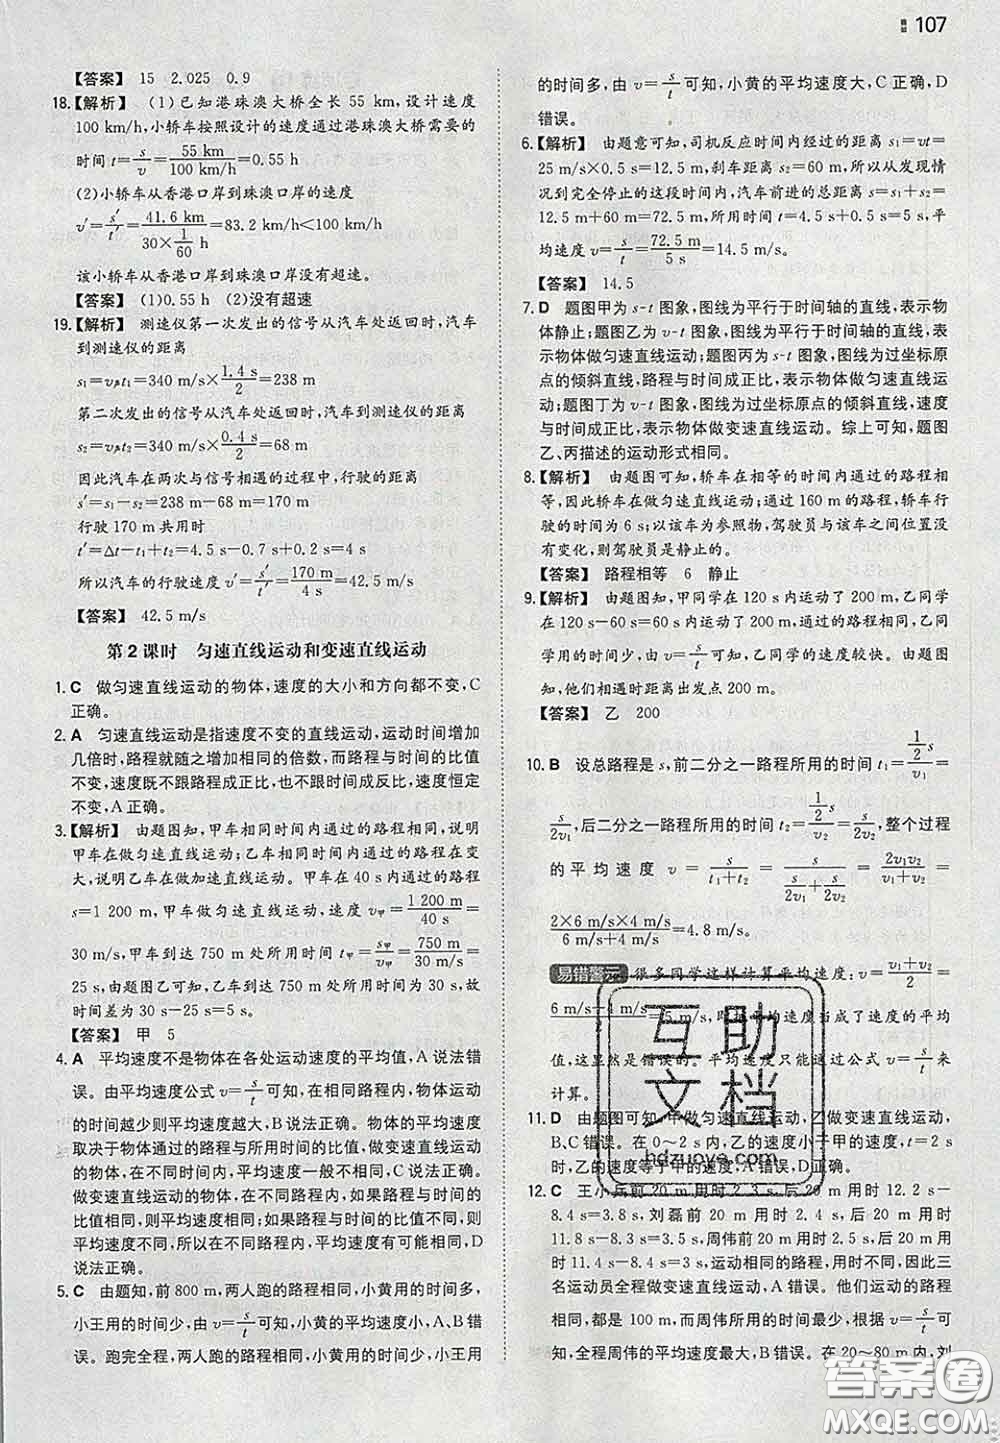 107
【答案】 15 2.025 0.9
18.【解析】 (1)已知港珠澳大桥全长 55 km,设计速度
100 km/h,小轿车按照设计的速度通过港珠澳大桥需要的
时间 t=s/v=55 km/100 km/h=0.55 h
(2)小轿车从香港口岸到珠澳口岸的速度
v′=s′/t′=41.6 km/(30×1/60 h)=83.2 km/h<100 km/h
该小轿车从香港口岸到珠澳口岸没有超速。
【答案】 (1)0.55 h (2)没有超速
19.【解析】 测速仪第一次发出的信号从汽车处返回时,汽车
到测速仪的距离
s₁=v声t₁=340 m/s×1.4 s/2=238 m
第二次发出的信号从汽车处返回时,汽车到测速仪的距离
s₂=v声t₂=340 m/s×0.4 s/2=68 m
因此汽车在两次与信号相遇的过程中,行驶的距离
s′=s₁-s₂=238 m-68 m=170 m
行驶 170 m 共用时
t′=Δt-t₁+t₂=4.5 s-0.7 s+0.2 s=4 s
所以汽车的行驶速度 v′=s′/t′=170 m/4 s=42.5 m/s
【答案】 42.5 m/s
第 2 课时 匀速直线运动和变速直线运动
1. C 做匀速直线运动的物体,速度的大小和方向都不变,C
正确。
2. A 匀速直线运动是指速度不变的直线运动,运动时间增加
几倍时,路程就随之增加相同的倍数,而路程与时间的比值
不变,速度既不跟路程成正比,也不跟时间成反比,速度恒定
不变,A 正确。
3.【解析】 由题图知,甲车相同时间内通过的路程相同,说明
甲车在做匀速直线运动;乙车相同时间内通过的路程在变
大,说明乙车在做加速直线运动。甲车在 40 s 内通过的路程
s=1 200 m,甲车做匀速直线运动,速度 v甲=1 200 m/40 s=
30 m/s,甲车到达 750 m 处所用时间 t甲=s甲/v甲=750 m/30 m/s=
25 s,由题图知,乙车到达 750 m 处所用的时间为 30 s,故
时间差为 30 s-25 s=5 s。
【答案】 甲 5
4. A 平均速度不是物体在各处运动速度的平均值,A 说法错
误。由平均速度公式 v=s/t可知,在相同路程内,物体运动
的时间越少则平均速度越大,B 说法正确。平均速度的大小
取决于物体通过的路程与所用时间的比值,做变速直线运动
的物体,在不同时间内,平均速度一般不相同,C 说法正确。
做变速直线运动的物体,在不同路程内,如果路程与时间的
比值相同,则平均速度相同;如果路程与时间的比值不同,则
平均速度不同,所以在不同路程中,平均速度有可能相同,D
说法正确。
5. C 由题知,前 800 m,两人跑的路程相同,小黄用的时间多,
小王用的时间少,由 v=s/t可知,小黄的平均速度小,A、B 错
误。跑完全程,两人跑的路程相同,小黄用的时间少,小王用
的时间多,由 v=s/t可知,小黄的平均速度大,C 正确,D
错误。
6.【解析】 由题意可知,司机反应时间内经过的距离 s₁=vt=
25 m/s×0.5 s=12.5 m,刹车距离 s₂=60 m,所以从发现情
况到完全停止的这段时间内,汽车前进的总距离 s=s₁+s₂=
12.5 m+60 m=72.5 m,所用时间 t=0.5 s+4.5 s=5 s,平
均速度 v=s/t=72.5 m/5 s=14.5 m/s。
【答案】 14.5
7. D 题图甲为 s-t 图象,图线为平行于时间轴的直线,表示物
体静止;题图乙为 v-t 图象,图线为平行于时间轴的直线,表
示物体做匀速直线运动;题图丙为 s-t 图象,图线为过坐标原
点的倾斜直线,路程与时间成正比,表示物体做匀速直线运
动;题图丁为 v-t 图象,图线为过坐标原点的倾斜直线,速度
与时间成正比,表示物体做变速直线运动。综上可知,题图
乙、丙描述的运动形式相同。
8.【解析】 由题图可知,轿车在相等的时间内通过的路程相
等,因此轿车在做匀速直线运动;通过 160 m 的路程,轿车行
驶的时间为 6 s;以该车为参照物,驾驶员与该车之间位置没
有变化,则驾驶员是静止的。
【答案】 路程相等 6 静止
9.【解析】 由题图知,甲同学在 120 s 内运动了 200 m,乙同学
在 120 s-60 s=60 s 内运动了 200 m,乙同学的速度较快。由题
图知,他们相遇时距离出发点 200 m。
【答案】 乙 200
10. B 设总路程是 s,前二分之一路程所用的时间 t₁=(1/2 s)/v₁=
s/2v₁,后二分之一路程所用的时间 t₂=(1/2 s)/v₂=s/2v₂,整个过程
的平均速度 v=s/(t₁+t₂)=s/(s/2v₁+s/2v₂)=2v₁v₂/(v₁+v₂)=
2×6 m/s×4 m/s/(6 m/s+4 m/s)=4.8 m/s。
易错警示 很多同学这样计算平均速度:v=(v₁+v₂)/2=
(6 m/s+4 m/s)/2=5 m/s,把平均速度当成了速度的平均
值,这显然是错误的。平均速度只能通过公式 v=s/t来
计算。
11. D 由题图可知,甲做匀速直线运动,乙做变速直线运动,
B、C 错误。在 0～2 s 内,乙的速度小于甲的速度,t=2 s
时,乙的速度等于甲的速度,A 错误,D 正确。
12. C 王小兵前 20 m 用时 2.3 s,后 20 m 用时 12.2 s-
8.4 s=3.8 s,刘磊前 20 m 用时 2.4 s,后 20 m 用时
11.8 s-8.3 s=3.5 s,周伟前 20 m 用时 2.5 s,后 20 m
用时 11.2 s-8.4 s=2.8 s,由 v=s/t可知,因此三
名运动员全程做变速直线运动,A 错误。他们运动的路程
相同,都是 100 m,而周伟所用的时间最短,由 v=s/t可
知,全程周伟的平均速度最大,B 错误。在 20～80 m 内,刘
互助
文档
hdzuoye.com
答案圈
MXQE.COM